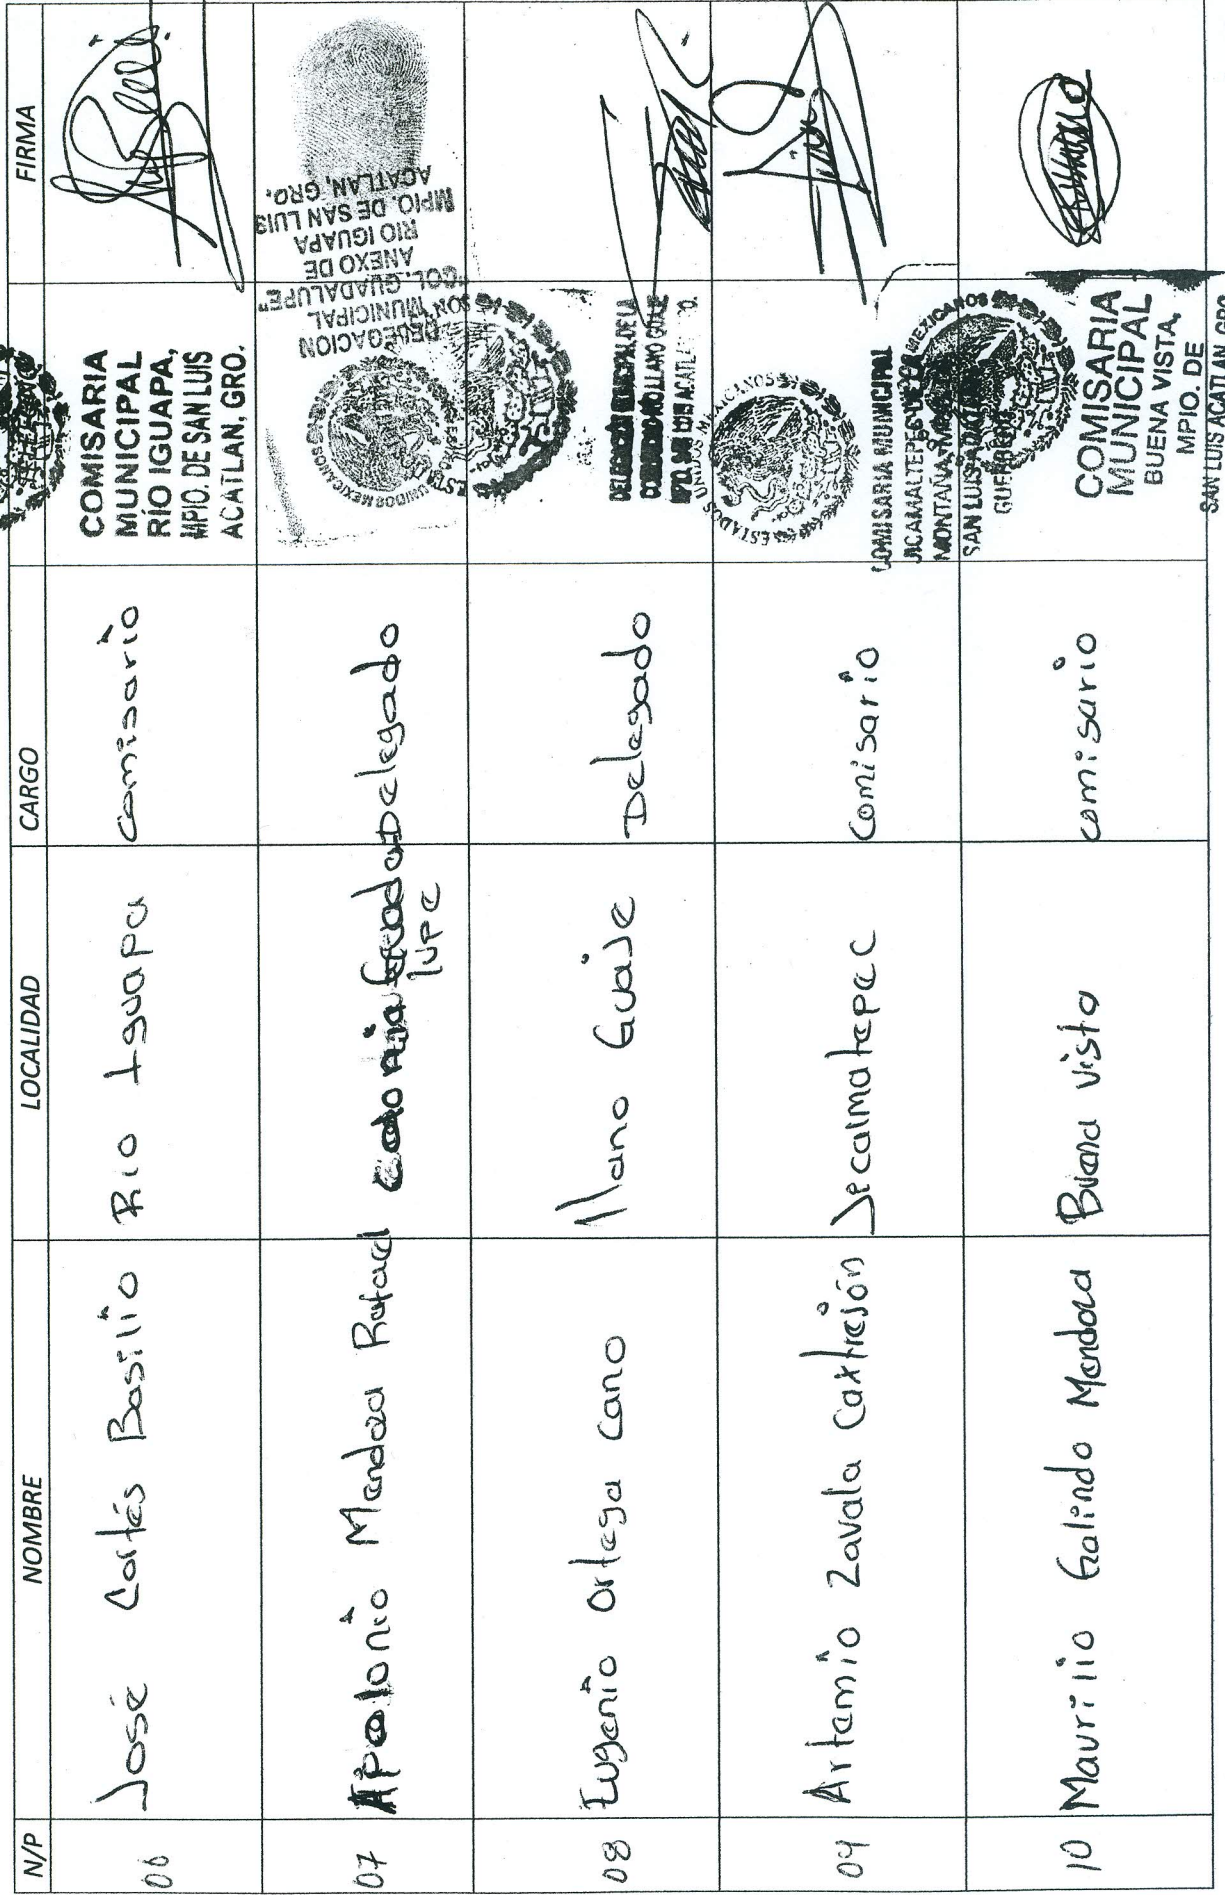 N/P NOMBRE LOCALIDAD CARGO FIRMA
06 José Cortés Basilio Rio Iguapa comisario
COMISARIA
MUNICIPAL
RÍO IGUAPA,
MPIO. DE SAN LUIS
ACATLAN, GRO.
07 Apolonio Mendoza Rafael colonia Guada Delegado
lupe
DELEGACION
MUNICIPAL
"COL. GUADALUPE"
ANEXO DE
RIO IGUAPA
MPIO. DE SAN LUIS
ACATLAN, GRO.
ESTADOS UNIDOS MEXICANOS
08 Eugenio Ortega Cano llano Guaje Delegado
DELEGACIÓN MUNICIPAL DE LA
LLANO GUAJE
MPIO. SAN LUIS ACATL
09 Artemio Zavala Castrejón Jicalmatepec Comisario
ESTADOS UNIDOS MEXICANOS
COMISARIA MUNICIPAL
JICAMALTEPEC DE LA
MONTAÑA MPIO.
SAN LUIS ACATLAN
GUERRERO
10 Maurilio Galindo Mendoza Buena vista comisario
MEXICANOS
COMISARIA
MUNICIPAL
BUENA VISTA,
MPIO. DE
SAN LUIS ACATLAN, GRO